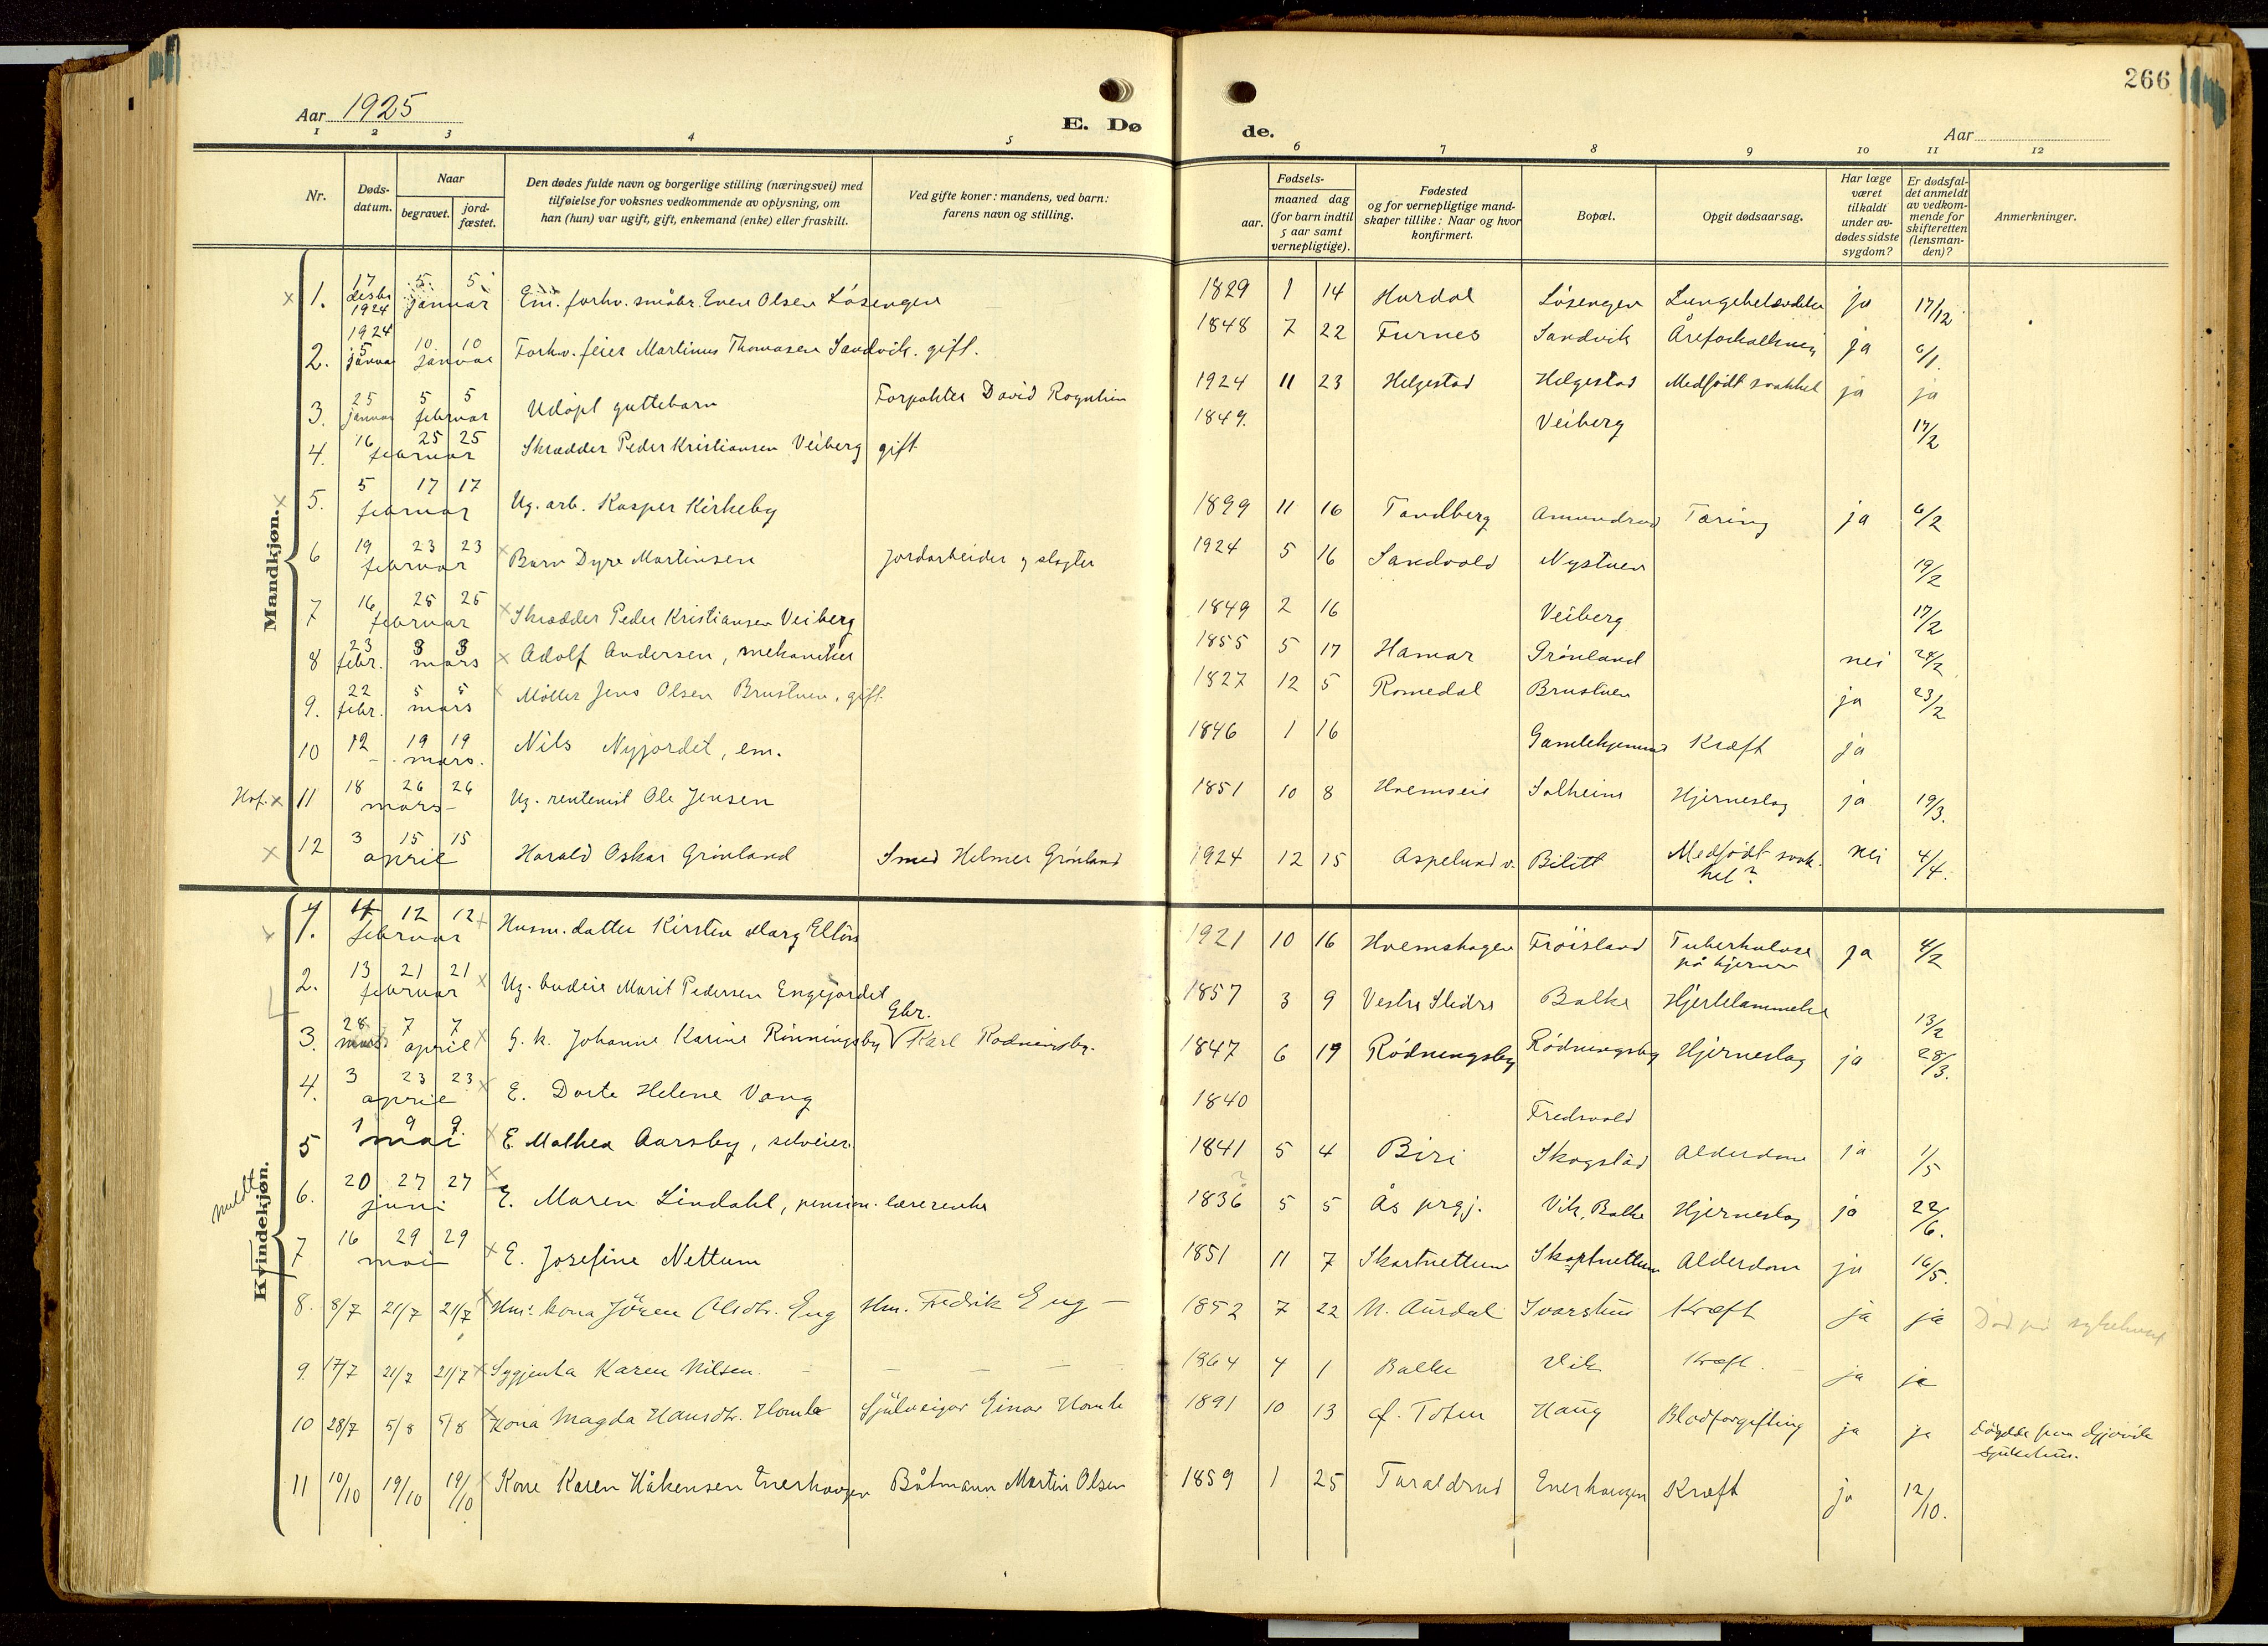 266
Aar 1925
E. Dø
de.
Aar
1 2 3 4 5 6 7 8 9 10 11 12
Nr.
Døds-datum.
Naar
begravet.
jord-fæstet.
Den dødes fulde navn og borgerlige stilling (næringsvei) med
tilføielse for voksnes vedkommende av oplysning, om
han (hun) var ugift, gift, enkemand (enke) eller fraskilt.
Ved gifte koner: mandens, ved barn:
farens navn og stilling.
Fødsels-
aar.
maaned dag
(for barn indtil
5 aar samt
vernepligtige).
Fødested
og for vernepligtige mand-
skaper tillike: Naar og hvor
konfirmert.
Bopæl.
Opgit dødsaarsag.
Har læge
været
tilkaldt
under av-
dødes sidste
sygdom?
Er dødsfal-
det anmeldt
av vedkom-
mende for
skifteretten
(lensman-
den)?
Anmerkninger.
Mandkjøn.
× 1. 17 desbr 1924 5. 5 januar Em. forhv. småbr. Even Olsen Lösengen 1829 1 14 Hurdal Lösengen Lungebetændelse ja 17/12
2. 1924 5 januar 10. 10 januar Forhv. feier Martinus Thomasen Sandvik. gift. 1848 7 22 Furnes Sandvik Åreforkalkning ja 6/1
3. 25 januar 5 5 februar Udöpt guttebarn Forpakter David Rognlien 1924 11 23 Helgestad Helgestad Medfødt svakhet ja ja
4. 16 25 25 februar Skrædder Peder Kristiansen Veiberg gift 1849. Veiberg 17/2
× 5. 5 17 17 februar Ug. arb. Kasper Kirkeby 1899 11 16 Tandberg Amundrud Tæring ja 6/2
6 19 23 23 februar × Barn Dyre Martinsen Jordarbeider og slagter 1924 5 16 Sandvold Nystuen 19/2
7 16 25 25 februar × Skrædder Peder Kristiansen Veiberg 1849 2 16 Veiberg 17/2
8 23 febr. 3 3 mars × Adolf Andersen, mekaniker 1855 5 17 Hamar Grönland nei 24/2
9. 22 febr. 5 5 mars × Møller Jens Olsen Brustuen, gift 1827 12 5 Romedal Brustuen ja 23/2
10 12 19 19 mars. Nils Nyjordet, em. 1846 1 16 Gamlehjemmet Kræft ja
Hof. × 11 18 26 26 mars Ug. rentenist Ole Jensen 1851 10 8 Solheim Hjerneslag ja 19/3.
× 12 3 15 15 april Harald Oskar Grönland Smed Helmer Grönland 1924 12 15 Aspelund v. Bilitt Medfödt svak-het? nei 4/4.
Kvindekjøn.
1. 4 12 12 februar Husm. datter Kirsten Marg 1921 10 16 Fröisland Tuberkulose på hjernen ja 4/2
2. 13 21 21 februar × Ug. budeie Marit Pedersen Engejordet 1857 3 9 Vestre Slidre Balke Hjertelammelse 13/2
3. 28 mars 7 7 april × G. k. Johanne Karine Rönningsby Gbr. Karl Rødningsby. 1847 6 19 Rödningsby Rödningsby Hjerneslag ja 28/3.
4. 3 23 23 april × E. Dorte Helene Vang 1840 Fredvold
5 1 9 9. mai × E. Mathea Aarsby, selveier. 1841 5 4 Biri Skogstad Alderdom ja 1/5
6. 20 27 27 juni × E. Maren Lindahl, pension. lærerenke 1836 5 5 Ås prgj. Vik, Balke Hjerneslag ja 22/6.
7 16 29 29 mai × E. Josefine Nettum 1851 11 7 Skartnettum Skartnettum Alderdom ja 16/5.
8. 8/7 21/7 21/7 × Hms kona Jören Olsdtr. Eng Hm. Fredrik Eng — 1852 7 22 N. Aurdal Ivarstuu Kræft ja ja Död på sykehuset
9. 17/7 21/7 21/7 × Karen Nilsen. — — — — 1864 4 1 Balke Vik Kræft. — ja ja
10 28/7 5/8 5/8 × Kona Magda Hansdtr. Homle Sjülveigar Einar Homle 1891 10 13 Ø. Toten Haug Blodforgiftning ja ja Gjøvik sjukehus.
11 10/10 19/10 19/10 × Kone Karen Håkensen Enerhaugen Båtmann Martin Olsen 1859 1 25 Taraldrud Enerhaugen Kræft ja 12/10.